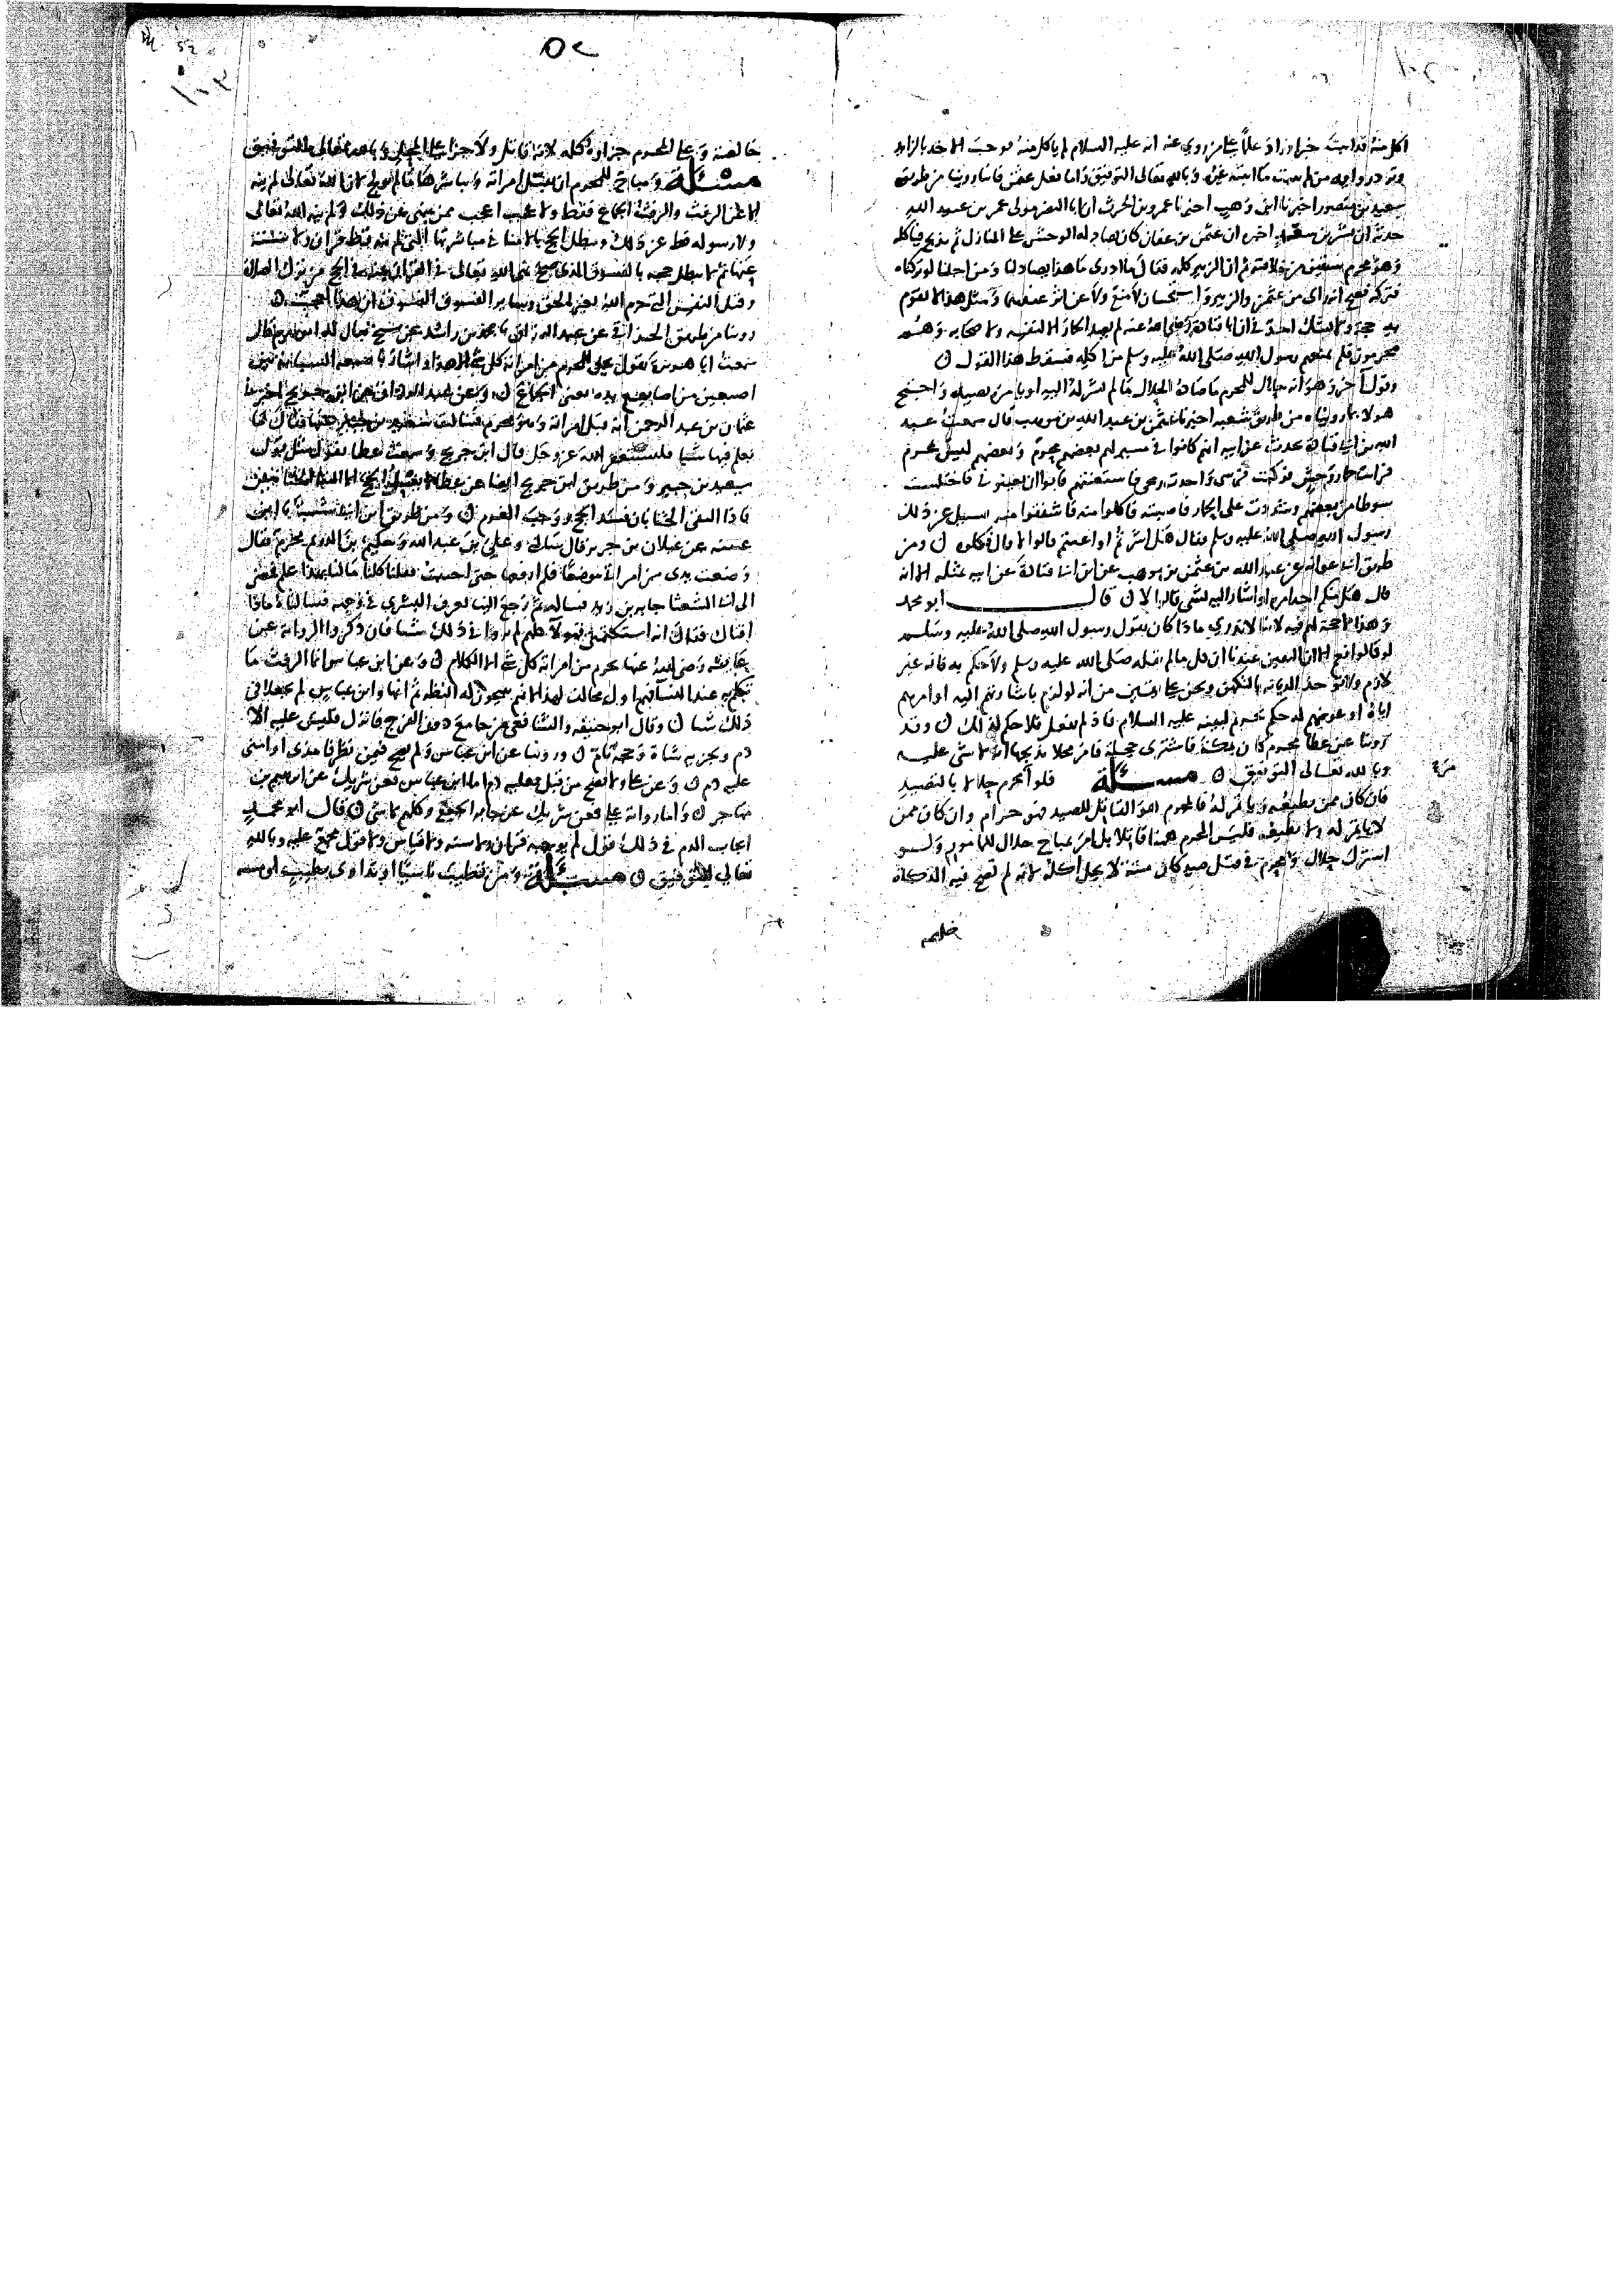 اكل منه قد اثبت خبرا وزاد علما على من روى عنه انه عليه السلام لم ياكل منه فوجب الاخذ بالزايد
من لم يثبت ما اثبته غيره وبالله تعالى التوفيق واما فعل عثمن فانا روينا من طريق
سعيد بن منصور اخبرنا ابن وهب اخبرنا عمرو بن الحرث ان ابا النضر مولى عمر بن عبيد الله
حدثه ان بسر بن سعيد اخبره ان عثمن بن عفان كان يصاد له الوحش على المنازل ثم يذبح فياكله
وهو محرم سنتين من خلافته ثم ان الزبير كلمه فقال ما ادرى ما هذا يصاد لنا ومن اجلنا لو تركناه
فتركه فصح انه راى من عثمن والزبير واستحسان لا منع ولا عن اثر عندهما ومثل هذا لا تقوم
به حجة ولا يشك احد فى ان ابا قتادة رضى الله عنه لم يصد الحمار الا لنفسه ولاصحابه وهم
محرمون فلم يمنعهم رسول الله صلى الله عليه وسلم من اكله فسقط هذا القول ن
وقول اخر وهو انه حلال للمحرم ما صاده الحلال ما لم يشر له اليه او يامره بصيده واحتج
هولا بما رويناه من طريق شعبه اخبرنا عثمن بن عبد الله بن موهب قال سمعت عبد
الله بن ابى قتادة يحدث عن ابيه انهم كانوا فى مسير لهم بعضهم محرم وبعضهم ليس بمحرم
فرايت حمار وحش فركبت فرسى واخذت رمحى فاستعنتهم فابوا ان يعينونى فاختلست
سوطا من بعضهم وشددت على الحمار فاصبته فاكلوا منه فاشفقوا منه فسيل عن ذلك
رسول الله صلى الله عليه وسلم فقال هل اشرتم او اعنتم قالوا لا قال فكلوه ن ومن
طريق ابى عوانه عن عبد الله بن عثمن بن موهب عن ابن ابى قتادة عن ابيه بمثله الا انه
قال هل منكم احد امره او اشار اليه بشى قالوا لا ن قال ابو محمد
وهذا لا حجة لهم فيه لاننا لا ندرى ماذا كان يقول رسول الله صلى الله عليه وسلم
لو قالوا نعم الا ان اليقين عندنا ان كل ما لم يقله صلى الله عليه وسلم ولا حكم به فانه غير
لازم ولا يوخذ الديانه بالتكهن ونحن على يقين من انه لو لزم باشارتهم اليه او امرهم
اياه او عونهم له حكم تحريم لبينه عليه السلام فاذ لم يفعل فلا حكم لذلك ن وقد
روينا عن عطا محرم كان بمكة فاشترى حجلة فامر محلا بذبحها انه لا شى عليه
وبالله تعالى التوفيق ن مسئلة فلو امر محرم حلالا بالتصيد
فان كان ممن يطيعه وياتمر له فالمحرم هو القاتل للصيد فهو حرام وان كان ممن
لا ياتمر له ولا يطيعه فليس المحرم هنا قاتلا بل امر بمباح حلال للمامور ولو
اشترك حلال ومحرم فى قتل صيد كان ميتة لا يحل اكله لانه لم تصح فيه الذكاة
خالصه
٥٢
52
خالصة وعلى المحرم جزاوه كله لانه قاتل ولا جزا على المحل وبالله تعالى التوفيق
مسئلة ومباح للمحرم ان يقبل امراته ويباشرها ما لم يولج لان الله تعالى لم ينه
الا عن الرفث والرفث الجماع فقط ولا عجب اعجب ممن ينهى عن ذلك ولم ينه الله تعالى
ولا رسوله قط عن ذلك ويبطل الحج بالامنا فى مباشرتها التى لم ينه قط قران ولا سنة
عنها ثم لا يبطل حجه بالفسوق الذى صح نهى الله تعالى فى القران عنه فى الحج من ترك الصلاة
وقتل النفس التى حرم الله بغير الحق وساير الفسوق ان هذا لعجب ن
روينا من طريق الحذافى عن عبد الرزاق نا محمد بن راشد عن شيخ يقال له ابو هرم قال
سمعت ابا هريرة يقول يحل للمحرم من امراته كل شى الا هذا واشار باصبعه السبابة بين
اصبعين من اصابع يده يعنى الجماع ن وعن عبد الرزاق عن ابن جريج اخبرنى
عثمان بن عبد الرحمن انه قبل امراته وهو محرم فسالت سعيد بن جبير عنها فقال ما
نعلم فيها شيا فليستغفر الله عز وجل قال ابن جريج وسمعت عطا يقول مثل قول
سعيد بن جبير ومن طريق ابن جريج ايضا عن عطا لا يفسد الحج الا التقا الختانين
فاذا التقى الختانان فسد الحج ووجب الغرم ن ومن طريق ابن ابى شيبة نا ابن
عليه عن غيلان بن جرير قال سالت وعلى بن عبد الله وحكيم بن الدريم محرم فقال
وضعت يدى من امراتى موضعا فلم ارفعها حتى اجنبت فقلنا كلنا ما لنا بهذا علم فمضى
الى ابى الشعثا جابر بن زيد فساله ثم رجع الينا نعرف البشرى فى وجهه فسالناه ماذا
افتاك فقال انه استكتمنى فهولا كلهم لم يروا فى ذلك شيا فان ذكروا الرواية عن
عايشه رضى الله عنها يحرم من امراته كل شى الا الكلام ن وعن ابن عباس انما الرفث ما
تكلم به عند النسا فهم اول مخالف لهذا لانهم يبيحون له النظر ثم انها وابن عباس لم يجعلا فى
ذلك شيا ن وقال ابو حنيفه والشافعى من جامع دون الفرج فانزل فليس عليه الا
دم ويجزيه شاة وحجه تام ن وروينا عن ابن عباس ولم يصح فيمن نظر فامذى او امنى
عليه دم ن وعن على ولا يصح من قبل فعليه دم اما ابن عباس فعن شريك عن ابراهيم بن
مهاجر ن واما رواية على فعن شريك عن جابر الجعفى وكلهم لا شى ن قال ابو محمد
ايجاب الدم فى ذلك قول لم يوجبه قران ولا سنه ولا قياس ولا قول مجمع عليه وبالله
تعالى التوفيق ن مسئلة ومن تطيب ناسيا او تداوى بطيب او مسه